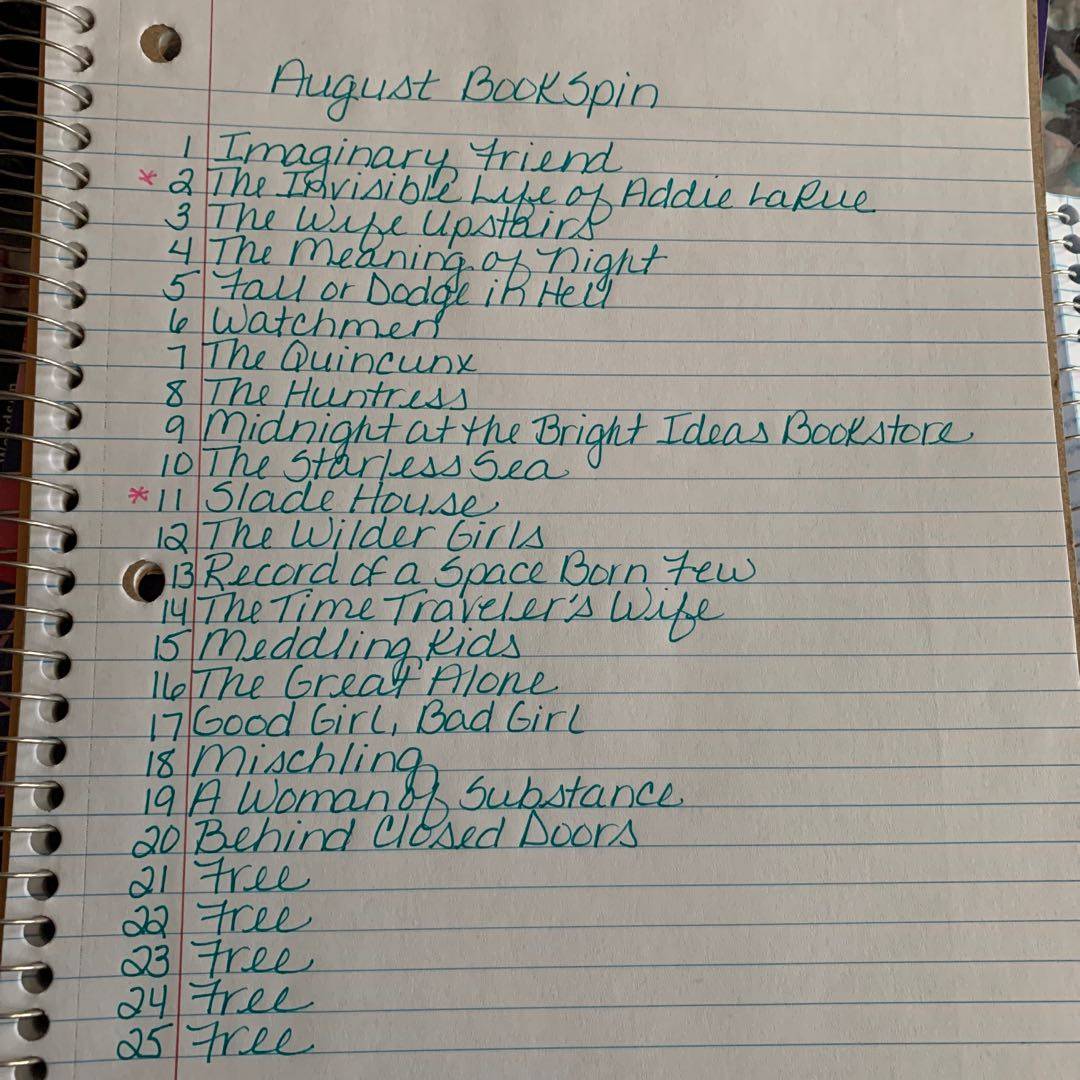 August BookSpin
1 Imaginary Friend
* 2 The Invisible Life of Addie LaRue
3 The Wife Upstairs
4 The Meaning of Night
5 Fall or Dodge in Hell
6 Watchmen
7 The Quincunx
8 The Huntress
9 Midnight at the Bright Ideas Bookstore
10 The Starless Sea
* 11 Slade House
12 The Wilder Girls
13 Record of a Space Born Few
14 The Time Traveler's Wife
15 Meddling Kids
16 The Great Alone
17 Good Girl, Bad Girl
18 Mischling
19 A Woman of Substance
20 Behind Closed Doors
21 Free
22 Free
23 Free
24 Free
25 Free